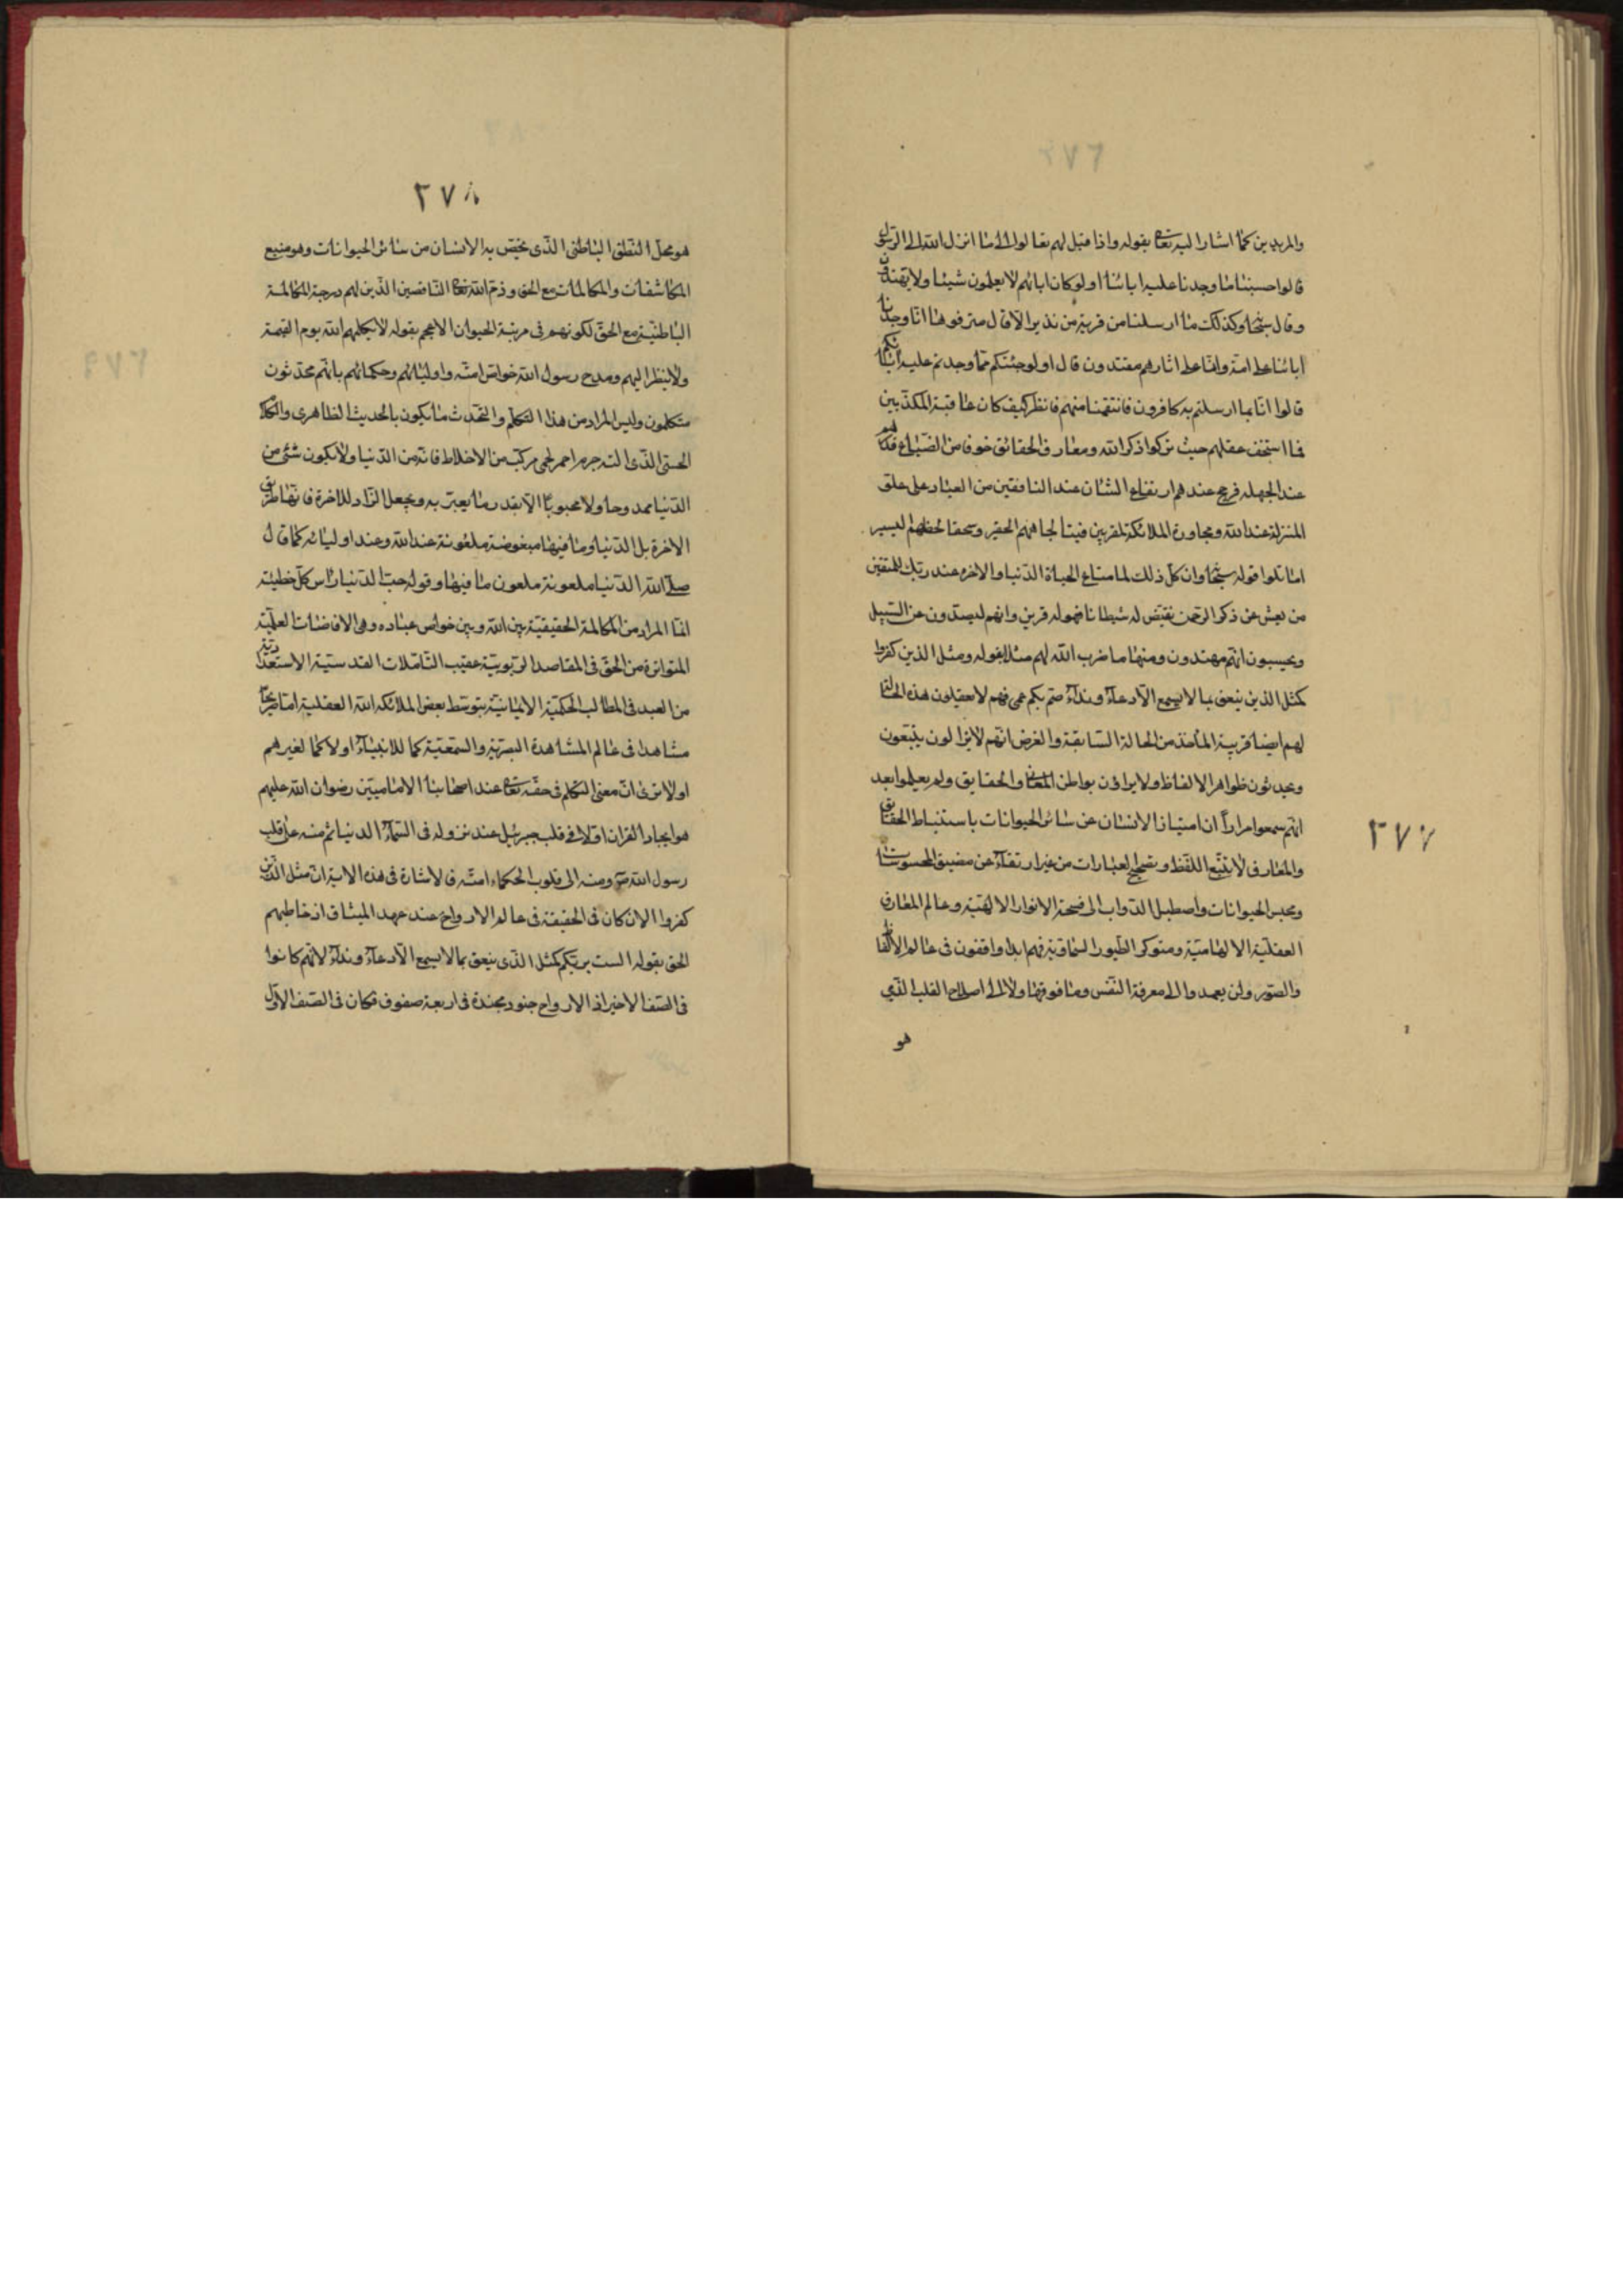 والمريدين كما اشار اليه تعالى بقوله واذا قيل لهم تعالوا الى ما انزل الله والى الرسول
قالوا حسبنا ما وجدنا عليه اباءنا اولو كان اباؤهم لا يعلمون شيئا ولا يهتدون
وقال سبحانه وكذلك ما ارسلنا من قرية من نذير الا قال مترفوها انا وجدنا
اباءنا على امة وانا على اثارهم مقتدون قال اولو جئتكم مما وجدتم عليه اباءكم
قالوا انا بما ارسلتم به كافرون فانتقمنا منهم فانظر كيف كان عاقبة المكذبين
فما استخف عقلهم حيث تركوا ذكر الله ومعارف الحقائق خوفا من الضياع
عند الجهله فرجح عندهم ارتفاع الشان عند الناقصين من العباد على علو
المنزلة عند الله ومجاورة الملائكة المقربين فتبا لجاههم الحقير وسحقا لحظهم اليسير
اما تلوا قوله سبحانه وان كل ذلك لما متاع الحياة الدنيا والاخره عند ربك للمتقين
من يعش عن ذكر الرحمن نقيض له شيطانا فهو له قرين وانهم ليصدون عن السبيل
ويحسبون انهم مهتدون ومنها ما ضرب الله لهم مثلا بقوله ومثل الذين كفروا
كمثل الذين ينعق بما لا يسمع الا دعاء ونداء صم بكم عمى فهم لا يعقلون هذه الحالة
لهم ايضا قريبة الماخذ من الحالة السابقة والغرض انهم لا يزالون يتبعون
ويحدثون ظواهر الالفاظ ولا يراؤن بواطن المعانى والحقايق ولم يعلموا بعد
انهم سمعوا مرارا ان امتياز الانسان عن سائر الحيوانات باستنباط الحقايق
والمعارف لا بتتبع اللفظ وتصحيح العبارات من غير ارتقاء عن مضيق المحسوسات
ومحبس الحيوانات واصطبل الدواب الى فسحة الانوار الالهية وعالم المعارف
العقلية الالهامية ومتوكر الطيور السماوية فهم ابدا واقفون فى عالم الالفاظ
والصور ولن يعمدوا الى معرفة النفس وما فوقها ولا الى اصلاح القلب الذي
هو
٢٧٧
٢٧٨
هو محل النطق الباطنى الذى يختص به الانسان من سائر الحيوانات وهو منبع
المكاشفات والمكالمات مع الحق وذم الله تعالى الناقصين الذين لهم درجة المكالمة
الباطنية مع الحق لكونهم فى مرتبة الحيوان الاعجم بقوله لا يكلمهم الله يوم القيمة
ولا ينظر اليهم ومدح رسول الله خواص امته واوليائهم وحكمائهم بانهم محدثون
متكلمون وليس المراد من هذا التكلم والتحدث ما يكون بالحديث الظاهرى والكلام
الحسى الذى الته جرم احمر لحمى مركب من الاخلاط فانه من الدنيا ولا يكون شئ من
الدنيا ممدوحا ولا محبوبا الا بقدر ما يعبر به ويجعل الزاد للاخرة فانها طريق
الاخرة بل الدنيا وما فيها مبغوضة ملعونة عند الله وعند اوليائه كما قال
صلى الله الدنيا ملعونة ملعون ما فيها وقوله حب الدنيا راس كل خطيئة
انما المراد من المكالمة الحقيقية بين الله وبين خواص عباده وهى الافاضات العلمية
المتواترة من الحق فى المقاصد الربوبية عقيب التاملات القدسية الاستعدادية
من العبد فى المطالب الحكمية الايمانية بتوسط بعض الملائكه الله العقلية اما صريحا
مشاهدا فى عالم المشاهدة البصرية والسمعية كما للانبياء اولا كما لغيرهم
اولا ترى ان معنى التكلم فى حقه تعالى عند اصحابنا الاماميين رضوان الله عليهم
هو ايجاد القران اولا فى قلب جبرئيل عند نزوله فى السماء الدنيا ثم منه على قلب
رسول الله ص ومنه الى قلوب الحكماء امته فالاشارة فى هذه الاية ان مثل الذين
كفروا الان كان فى الحقيقة فى عالم الارواح عند عهد الميثاق اذ خاطبهم
الحق بقوله الست بربكم كمثل الذى ينعق بما لا يسمع الا دعاء ونداء لانهم كانوا
فى الصف الاخير اذ الارواح جنود مجندة فى اربعة صفوف فكان فى الصف الاول